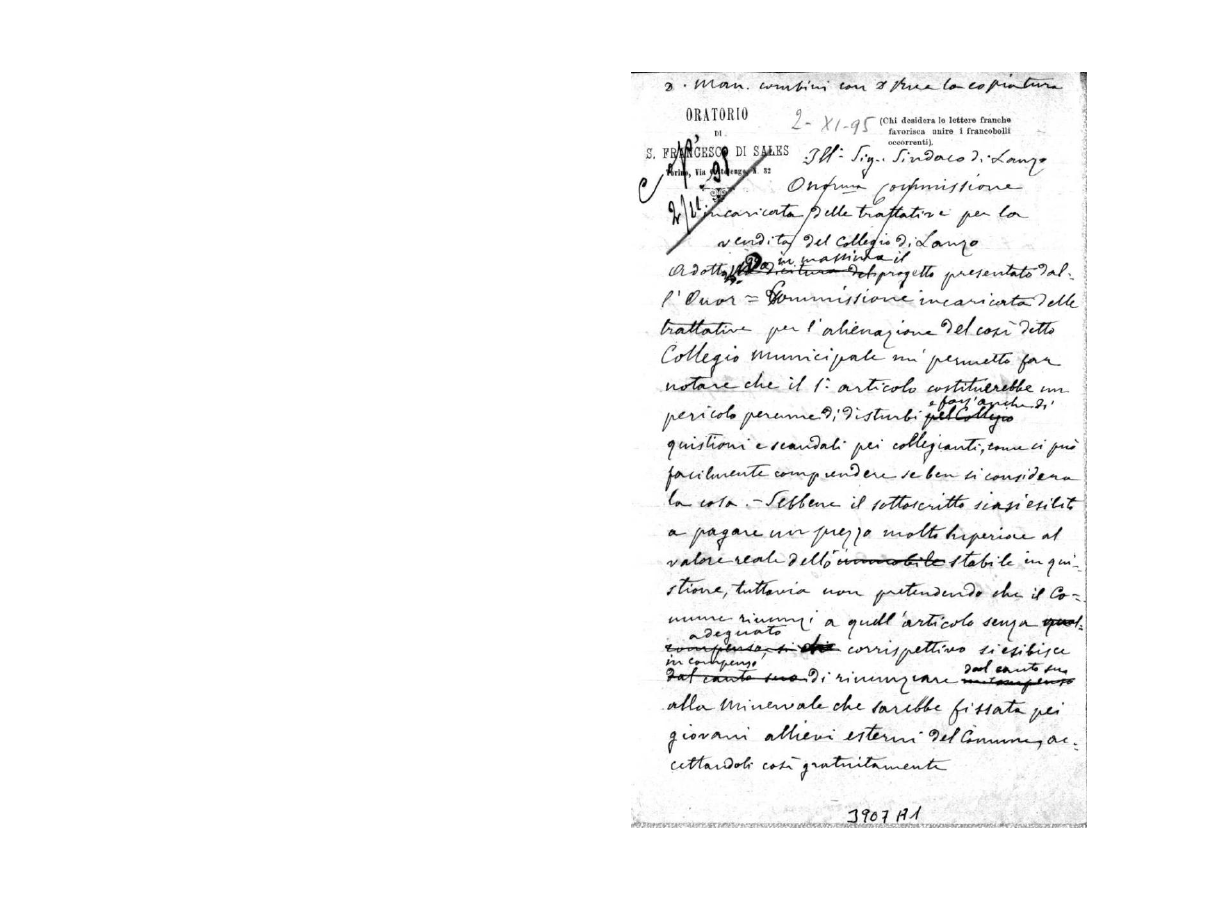 D. Man. combini con D Rua la copiatura
ORATORIO
DI
S. FRANCESCO DI SALES
Torino, Via Cottolengo, N. 32
2-XI-95
(Chi desidera le lettere franche
favorisca unire i francobolli
occorrenti).
Cop.
2/11.95
Ill. Sig. Sindaco di Lanzo
Commissione
incaricata delle trattative per la
vendita del Collegio di Lanzo
in massima il
Adotta progetto presentato dal-
l'Onor = Commissione incaricata delle
trattative per l'alienazione del così detto
Collegio Municipale mi permetto far
notare che il 1° articolo costituerebbe un
e fors'anche di
pericolo perenne di disturbi pel Collegio
quistioni e scandali pei collegianti, come si può
facilmente comprendere se ben si considera
la cosa. - Sebbene il sottoscritto siasi esibito
a pagare un prezzo molto superiore al
valore reale dello immobile stabile in qui-
stione, tuttavia non pretendendo che il Co=
mune rinunzi a quell'articolo senza qual-
adeguato
compenso, si corrispettivo si esibisce
in compenso
dal canto suo
dal canto suo di rinunziare in compenso
alla Minervale che sarebbe fissata pei
giovani allievi esterni del Comune, ac-
cettandoli così gratuitamente
3907 A1